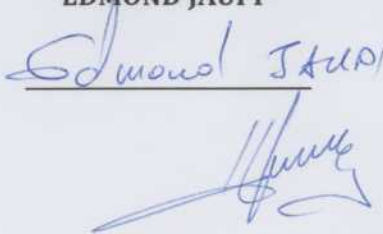 EDMOND JAUPI
Edmond JAUPI